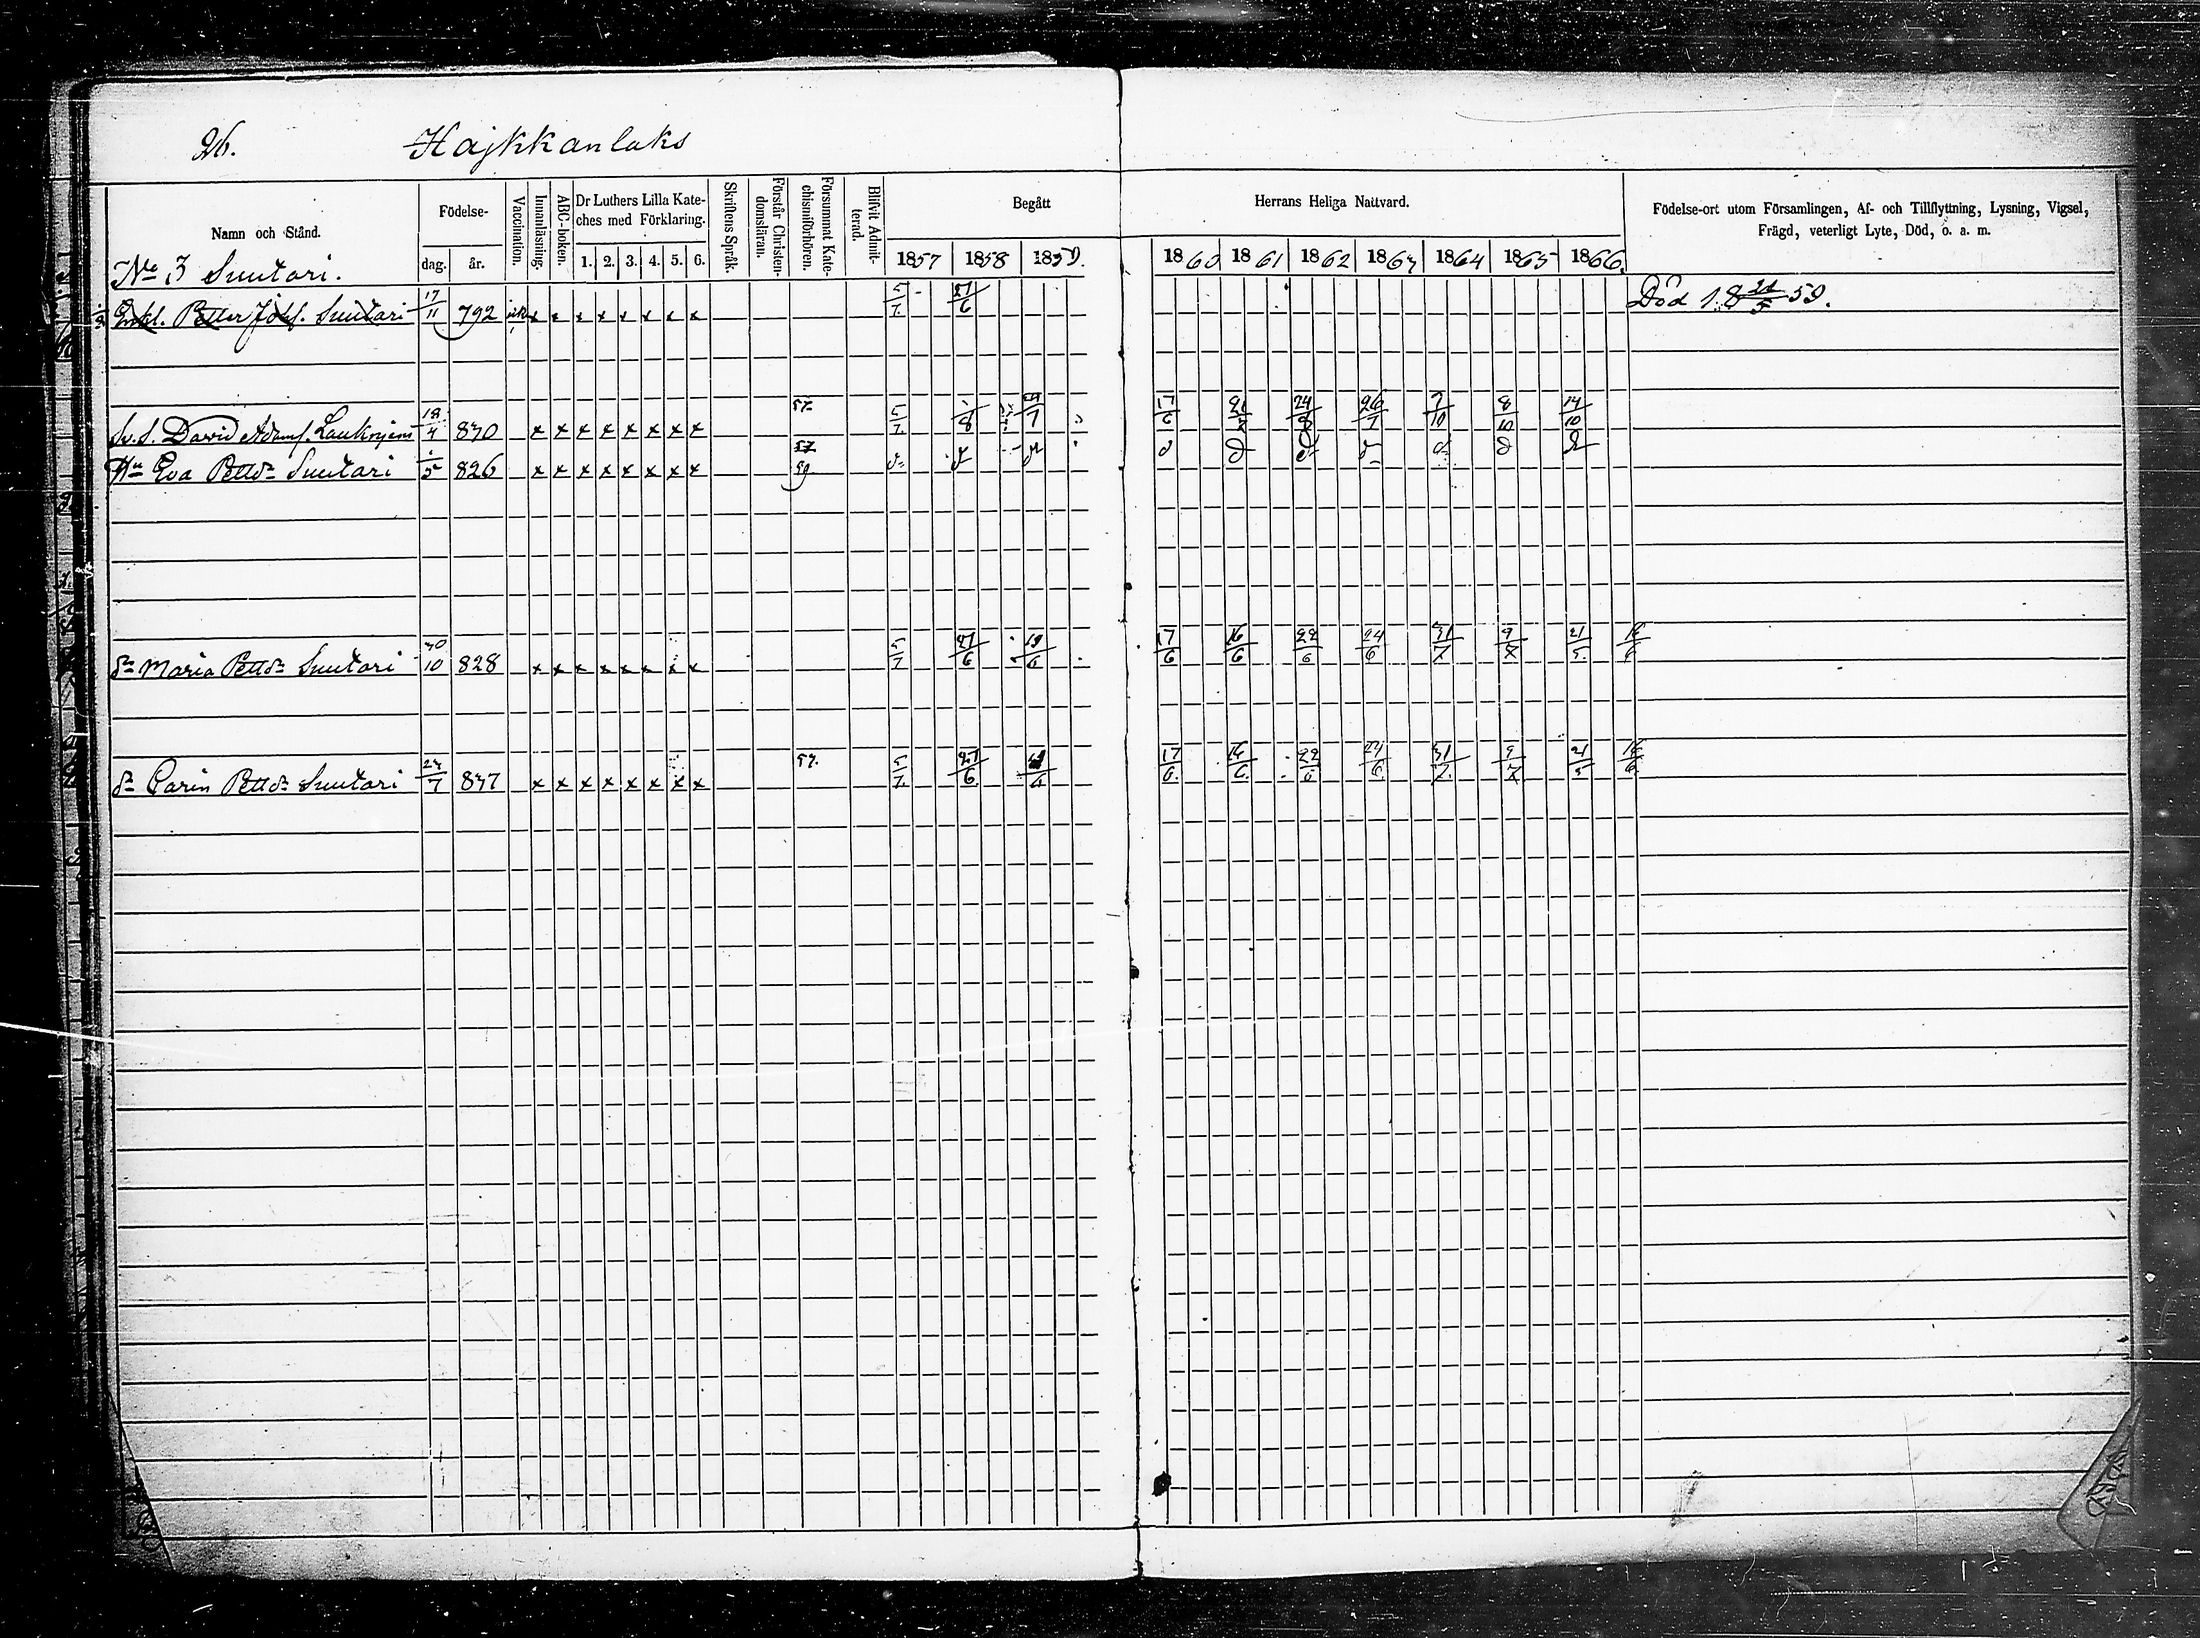 26. Hajkkanlaks
Namn och Stånd. Födelse- dag. år. Vaccination. Innanläsning. ABC-boken. Dr Luthers Lilla Kateches med Förklaring. 1. 2. 3. 4. 5. 6. Skriftens Språk. Förstår Christendomsläran. Försummat Katechismiförhören. Blifvit Admitterad. Begått Herrans Heliga Nattvard. Födelse-ort utom Församlingen, Af- och Tillflyttning, Lysning, Vigsel, Frägd, veterligt Lyte, Död, o. a. m.
1857 1858 1859. 1860 1861 1862 1863 1864 1865 1866
No 3 Suutari.
Enkl. Petter Johs. Suutari 17/11 792 x x x x x x x x 5/7 27/6 Död 18 21/5 59.
Sv.S. David Adamss. 18/4 830 x x x x x x x x 57. 5/7 17/6 24/8 26/7 8/10 14/10
Hu Eva Pettdr Suutari 826 x x x x x x x x 57 59
dr Maria Pettdr Suutari 30/10 828 x x x x x x x x 5/7 27/6 19/6 17/6 16/6 22/6 24/6 31/7 9/7 21/5 16/6
dr Carin Pettdr Suutari 837 x x x x x x x x 57. 5/7 27/6 17/6 16/6 22/6 24/6 31/7 9/7 21/5 16/6